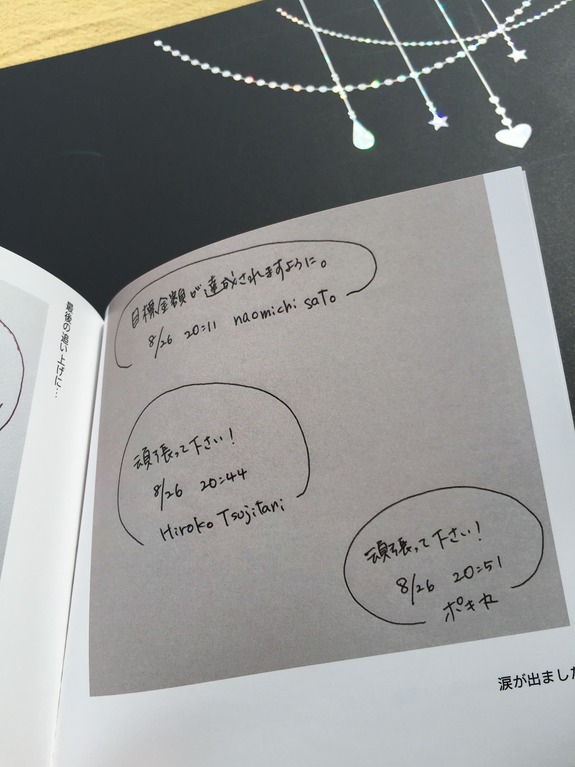 最後の追い上げに…
目標金額が達成されますように。
8/26 20:11 naomichi sato
頑張って下さい!
8/26 20:44
Hiroko Tsujitani
頑張って下さい!
8/26 20:51
ポキ丸
涙が出ました